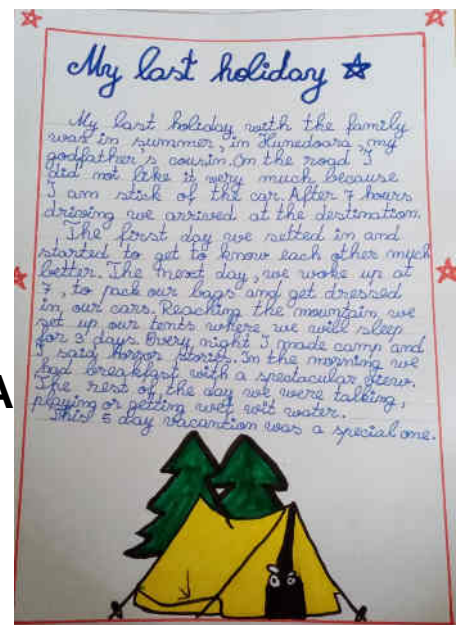 My last holiday
My last holiday with the family
was in summer, in Hunedoara, my
godfather's cousin. On the road I
did not like it very much because
I am stick of the car. After 7 hours
driving we arrived at the destination.
The first day we setted in and
started to get to know each other much
better. The next day, we woke up at
7, to pack our bags and get dressed
in our cars. Reaching the mountain, we
set up our tents where we will sleep
for 3 days. Every night I made camp and
I said horror stories. In the morning we
had breakfast with a spectacular view.
The rest of the day we were talking,
playing or getting wet wit water.
This 5 day vacantion was a special one.
A